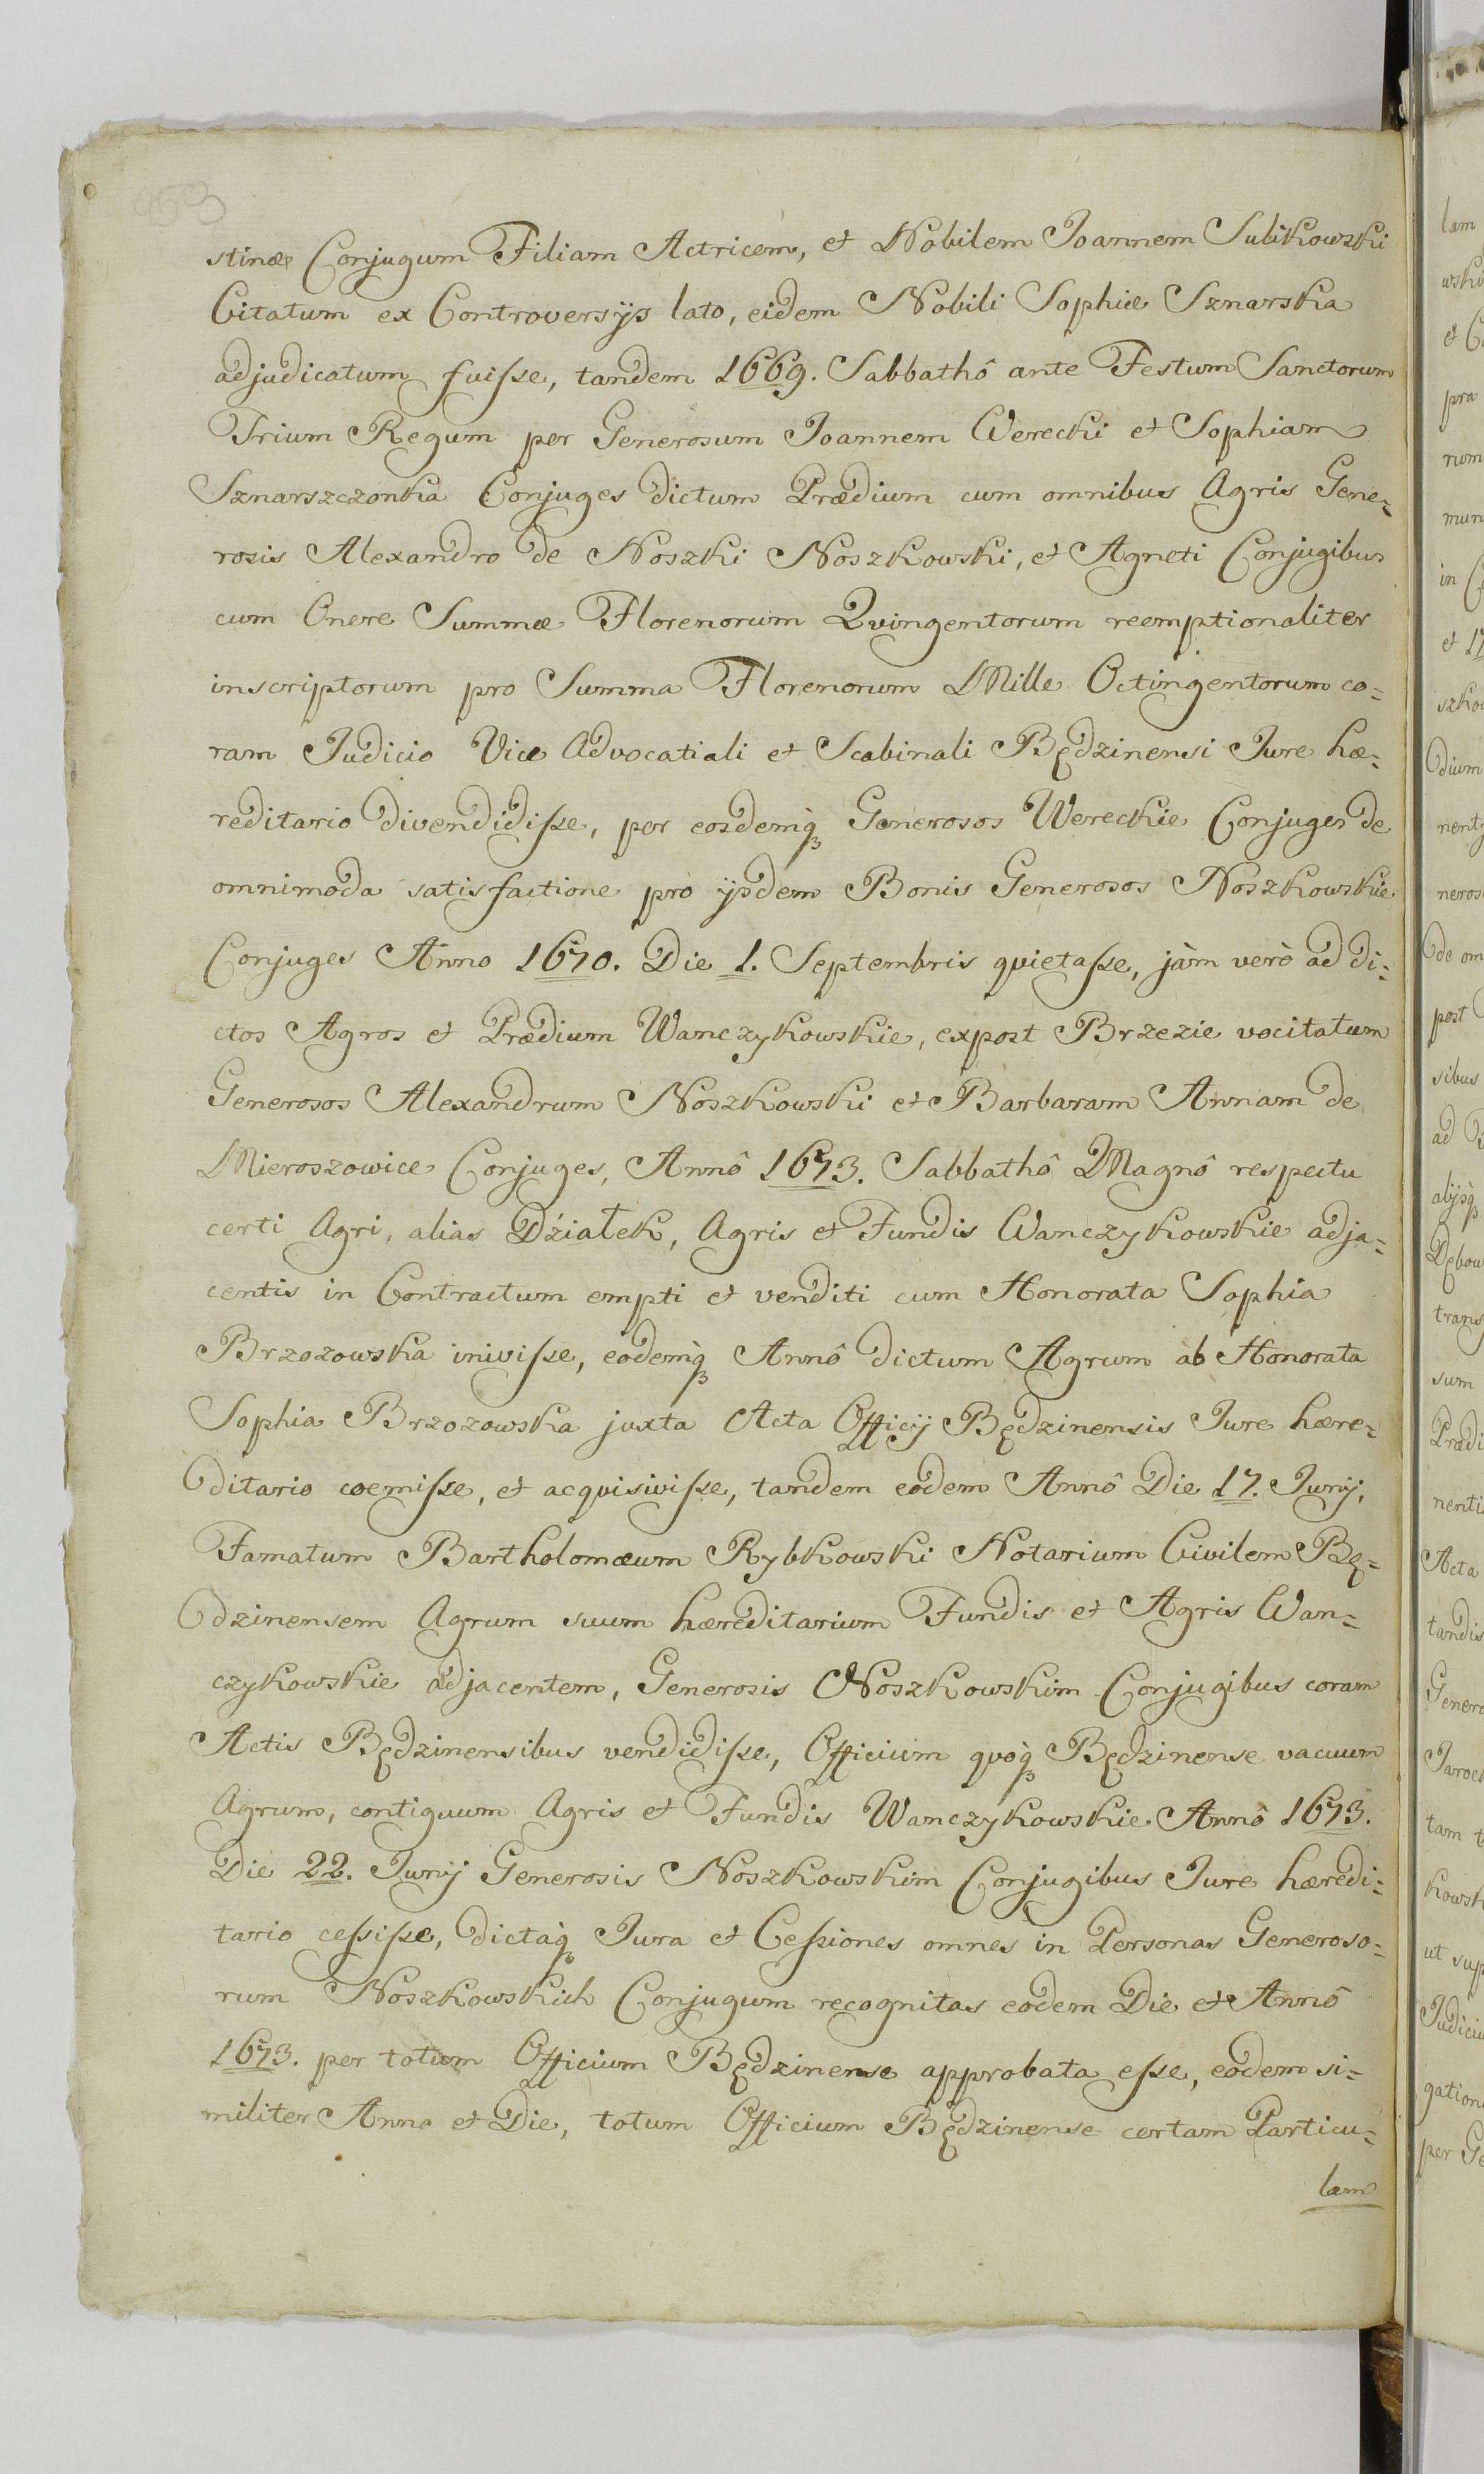 959
stinæ Conjugum Filiam Actricem, et Nobilem Joannem Sulikowski
Citatum ex Controversÿs lato, eidem Nobili Sophiæ Sznarska
adjudicatum fuiſse, tandem 1669. Sabbathô ante Festum Sanctorum
Trium Regum per Generosum Joannem Werecki et Sophiam
Sznarszczonka Conjuges dictum Prædium cum omnibus Agris Gene=
rosis Alexandro de Noszki Noszkowski, et Agneti Conjugibus
cum Onere Summæ Florenorum Qvingentorum reemptionaliter
inscriptorum pro Summa Florenorum Mille Octingentorum co=
ram Judicio Vice Advocatiali et Scabinali Będzinensi Jure hæ=
reditario divendidiſse, per eosdemq́ꝫ Generosos Wereckie Conjuges de
omnimoda satisfactione pro ÿsdem Bonis Generosos Noszkowskie
Conjuges Anno 1670. Die 1. Septembris qvietaſse, jàm verò ad di=
ctos Agros et Prædium Wanczykowskie, expost Brzezie vocitatum
Generosos Alexandrum Noszkowski et Barbaram Annam de
Mieroszowice Conjuges, Annô 1673. Sabbathô Magnô respectu
certi Agri, alias Działek, Agris et Fundis Wanczykowskie adja=
centis in Contractum empti et venditi cum Honorata Sophia
Brzozowska iniviſse, eodemq́ꝫ Annô dictum Agrum ab Honorata
Sophia Brzozowska juxta Acta Officÿ Będzinensis Jure hære=
ditario coemiſse, et acqvisiviſse, tandem eodem Annô Die 17. Junÿ,
Famatum Bartholomæum Rybkowski Notarium Civilem Bę=
dzinensem Agrum suum hæreditarium Fundis et Agris Wan=
czykowskie adjacentem, Generosis Noszkowskim Conjugibus coram
Actis Będzinensibus vendidiſse, Officium qvoq́ꝫ Będzinense vacuum
Agrum, contiguum Agris et Fundis Wanczykowskie Annô 1673.
Die 22. Junÿ Generosis Noszkowskim Conjugibus Jure hæredi=
tario ceſsiſse, dictaq́ꝫ Jura et Ceſsiones omnes in Personas Generoso=
rum Noszkowskich Conjugum recognitas eodem Die et Annô
1673. per totum Officium Będzinense approbata eſse, eodem si=
militer Anno et Die, totum Officium Będzinense certam Particu=
lam